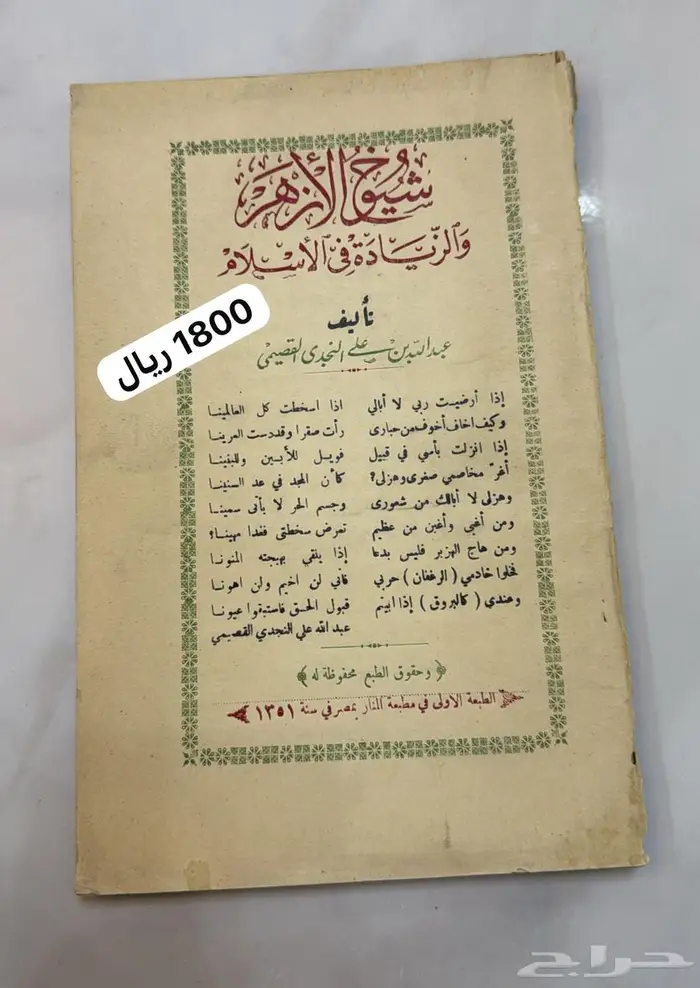 شيوخ الأزهر
والزيادة في الأسلام
تأليف
عبد الله بن علي النجدي القصيمي
1800 ريال
إذا أرضيت ربي لا أبالي اذا اسخطت كل العالمينا
وكيف اخاف أخوف من حبارى رأت صقرا وقددست العرينا
إذا انزلت بأسي في قبيل فويل للأبين وللبنينا
أغر مخاصمي صغرى وهزلى؟ كأن المجد في عد السنينا
وهزلى لا أبالك من شعورى وجسم الحر لا يأتى سمينا
ومن أغبي وأغبن من عظيم تعرض سخطتى فغدا مهينا؟
ومن هاج الهزبر فليس بدعا إذا يلقي بهجته المنونا
فخلوا خادمي (الرغفان) حربي فاني لن اخيم ولن اهونا
وعندي (كالبروق) إذا ابيتم قبول الحق فاستبقوا عيونا
عبد الله علي النجدي القصيمي
﴿ وحقوق الطبع محفوظة له ﴾
الطبعة الاولى في مطبعة المنار بمصر في سنة ١٣٥١
حراج